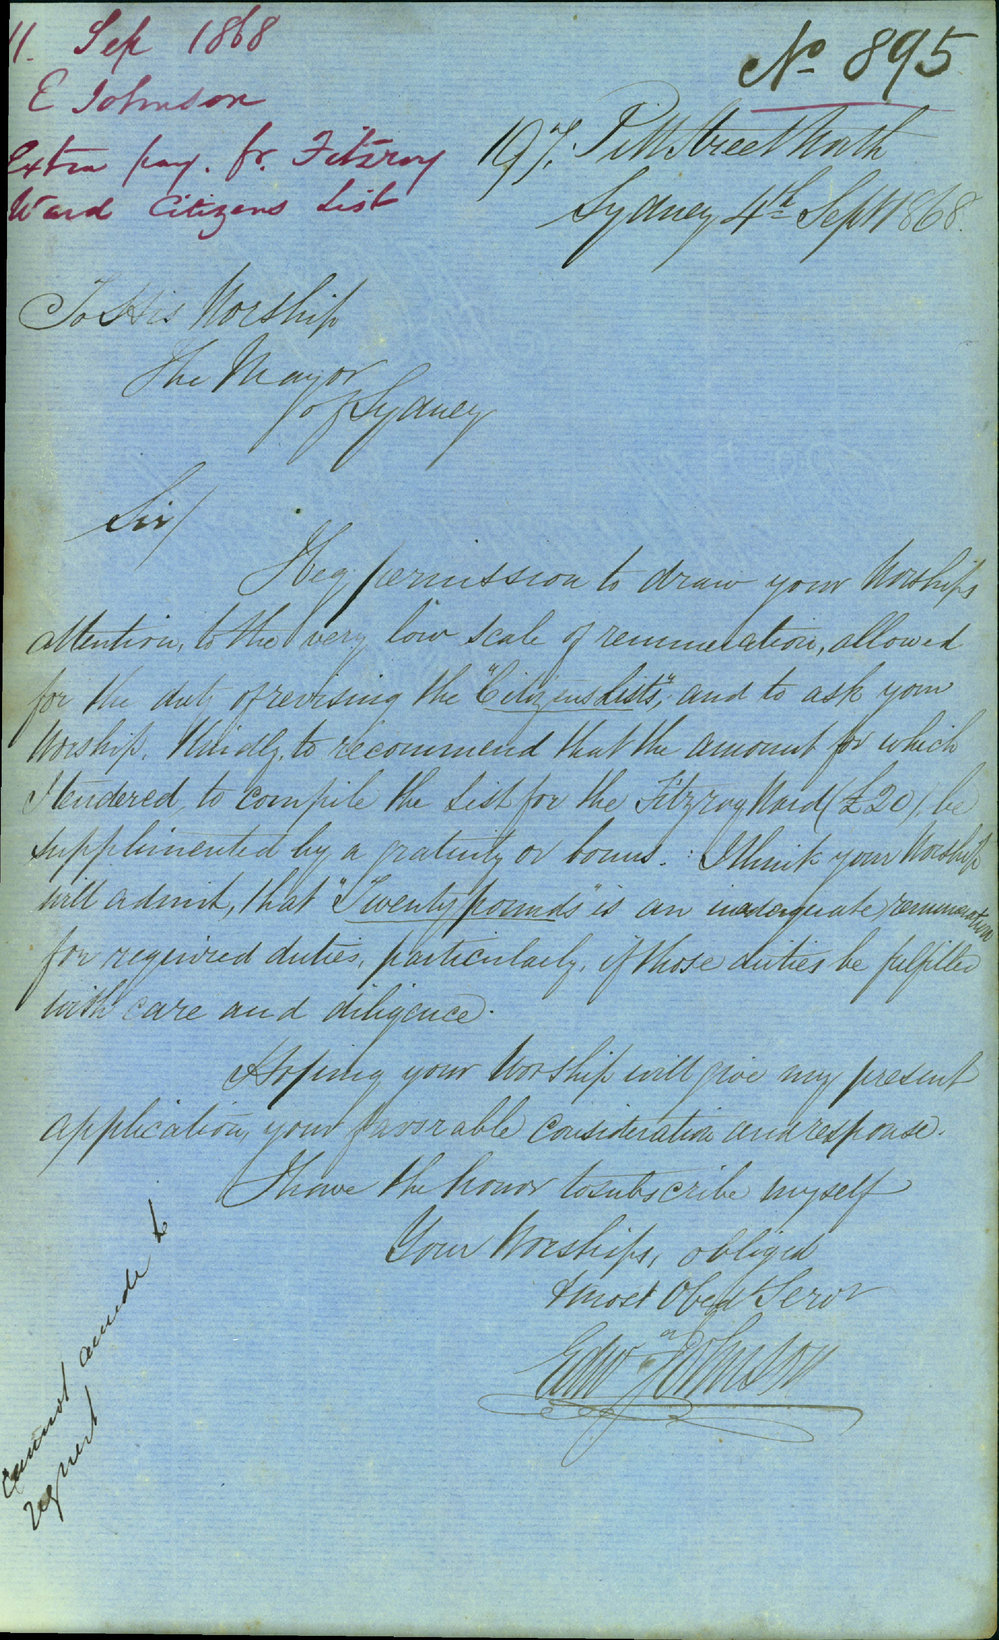 11. Sep 1868
E Johnson
Extra pay. fr. Fitzroy
Ward Citizens List
No 895
197. Pitt Street North
Sydney 4th Sept 1868.
To His Worship
The Mayor
of Sydney
Sir/
I beg permission to draw your Worships
attention, to the very low scale of remuneration, allowed
for the duty of revising the "Citizens Lists", and to ask your
Worship, kindly, to recommend that the amount for which
I tendered, to compile the List for the Fitzroy Ward (£20), be
supplimented by a gratuity or bonus. I think your Worship
will admit, that "Twenty pounds" is an inadequate remuneration
for required duties, particularly, if those duties be fulfilled
with care and diligence.
Hoping your Worship will give my present
application, your favorable consideration and response.
I have the honor to subscribe myself
Your Worships, obliged
& most Obedt Servt
Edwn Johnson
Cannot accede to
request